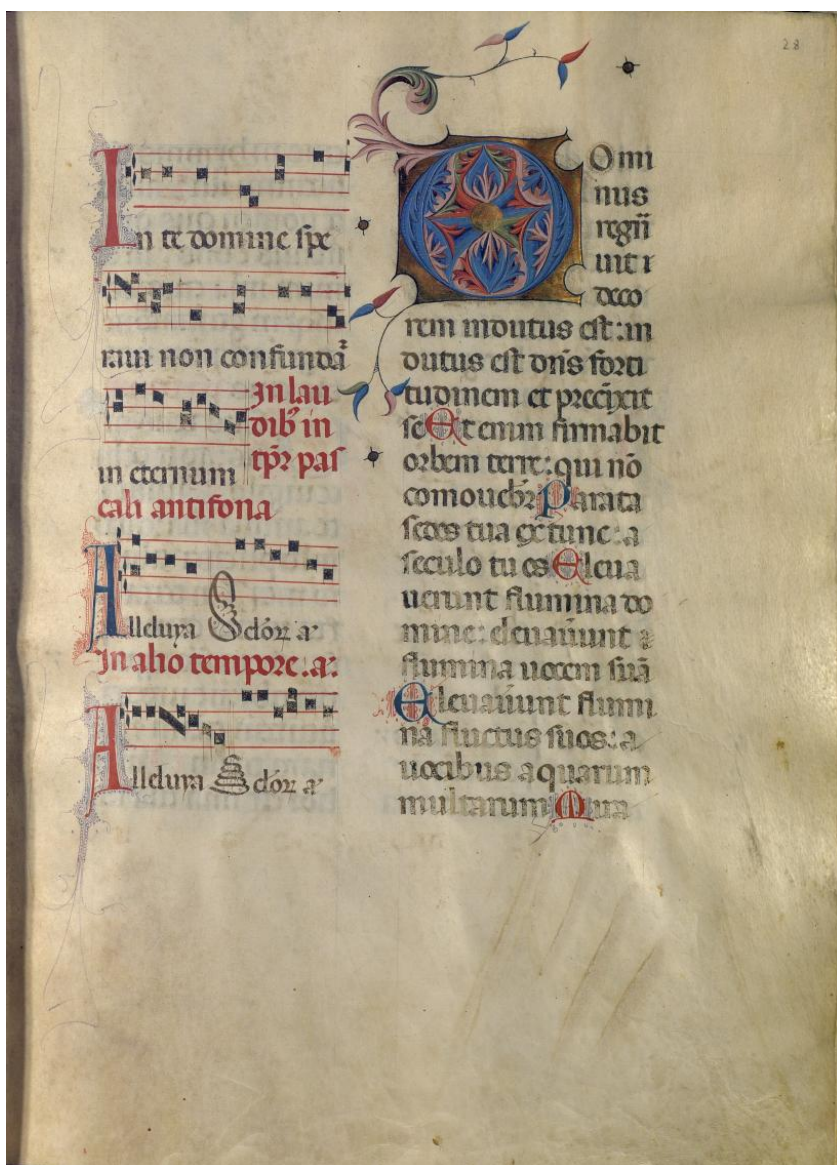 28
In te domine spe
raui non confundā
in eternum
In lau
dib᷒ in
tp̄r pas
cali antifona
Alleluya Sclor̄ a᷒
In alio tempore .a:
Alleluya Sclor̄ a᷒
Domi
nus
regn̄
uit ⁊
deco
rem indutus est: in
dutus est dn̄s forti
tudinem et precinxit
se Etenim firmabit
orbem terre: qui nō
comouebr̄ Parata
sedes tua ex tunc: a
seculo tu es Eleua
uerunt flumina do
mine: eleuaūunt ⁊
flumina uocem suā
Eleuaūunt flumi
na fluctus suos: a
uocibus aquarum
multarum Mira